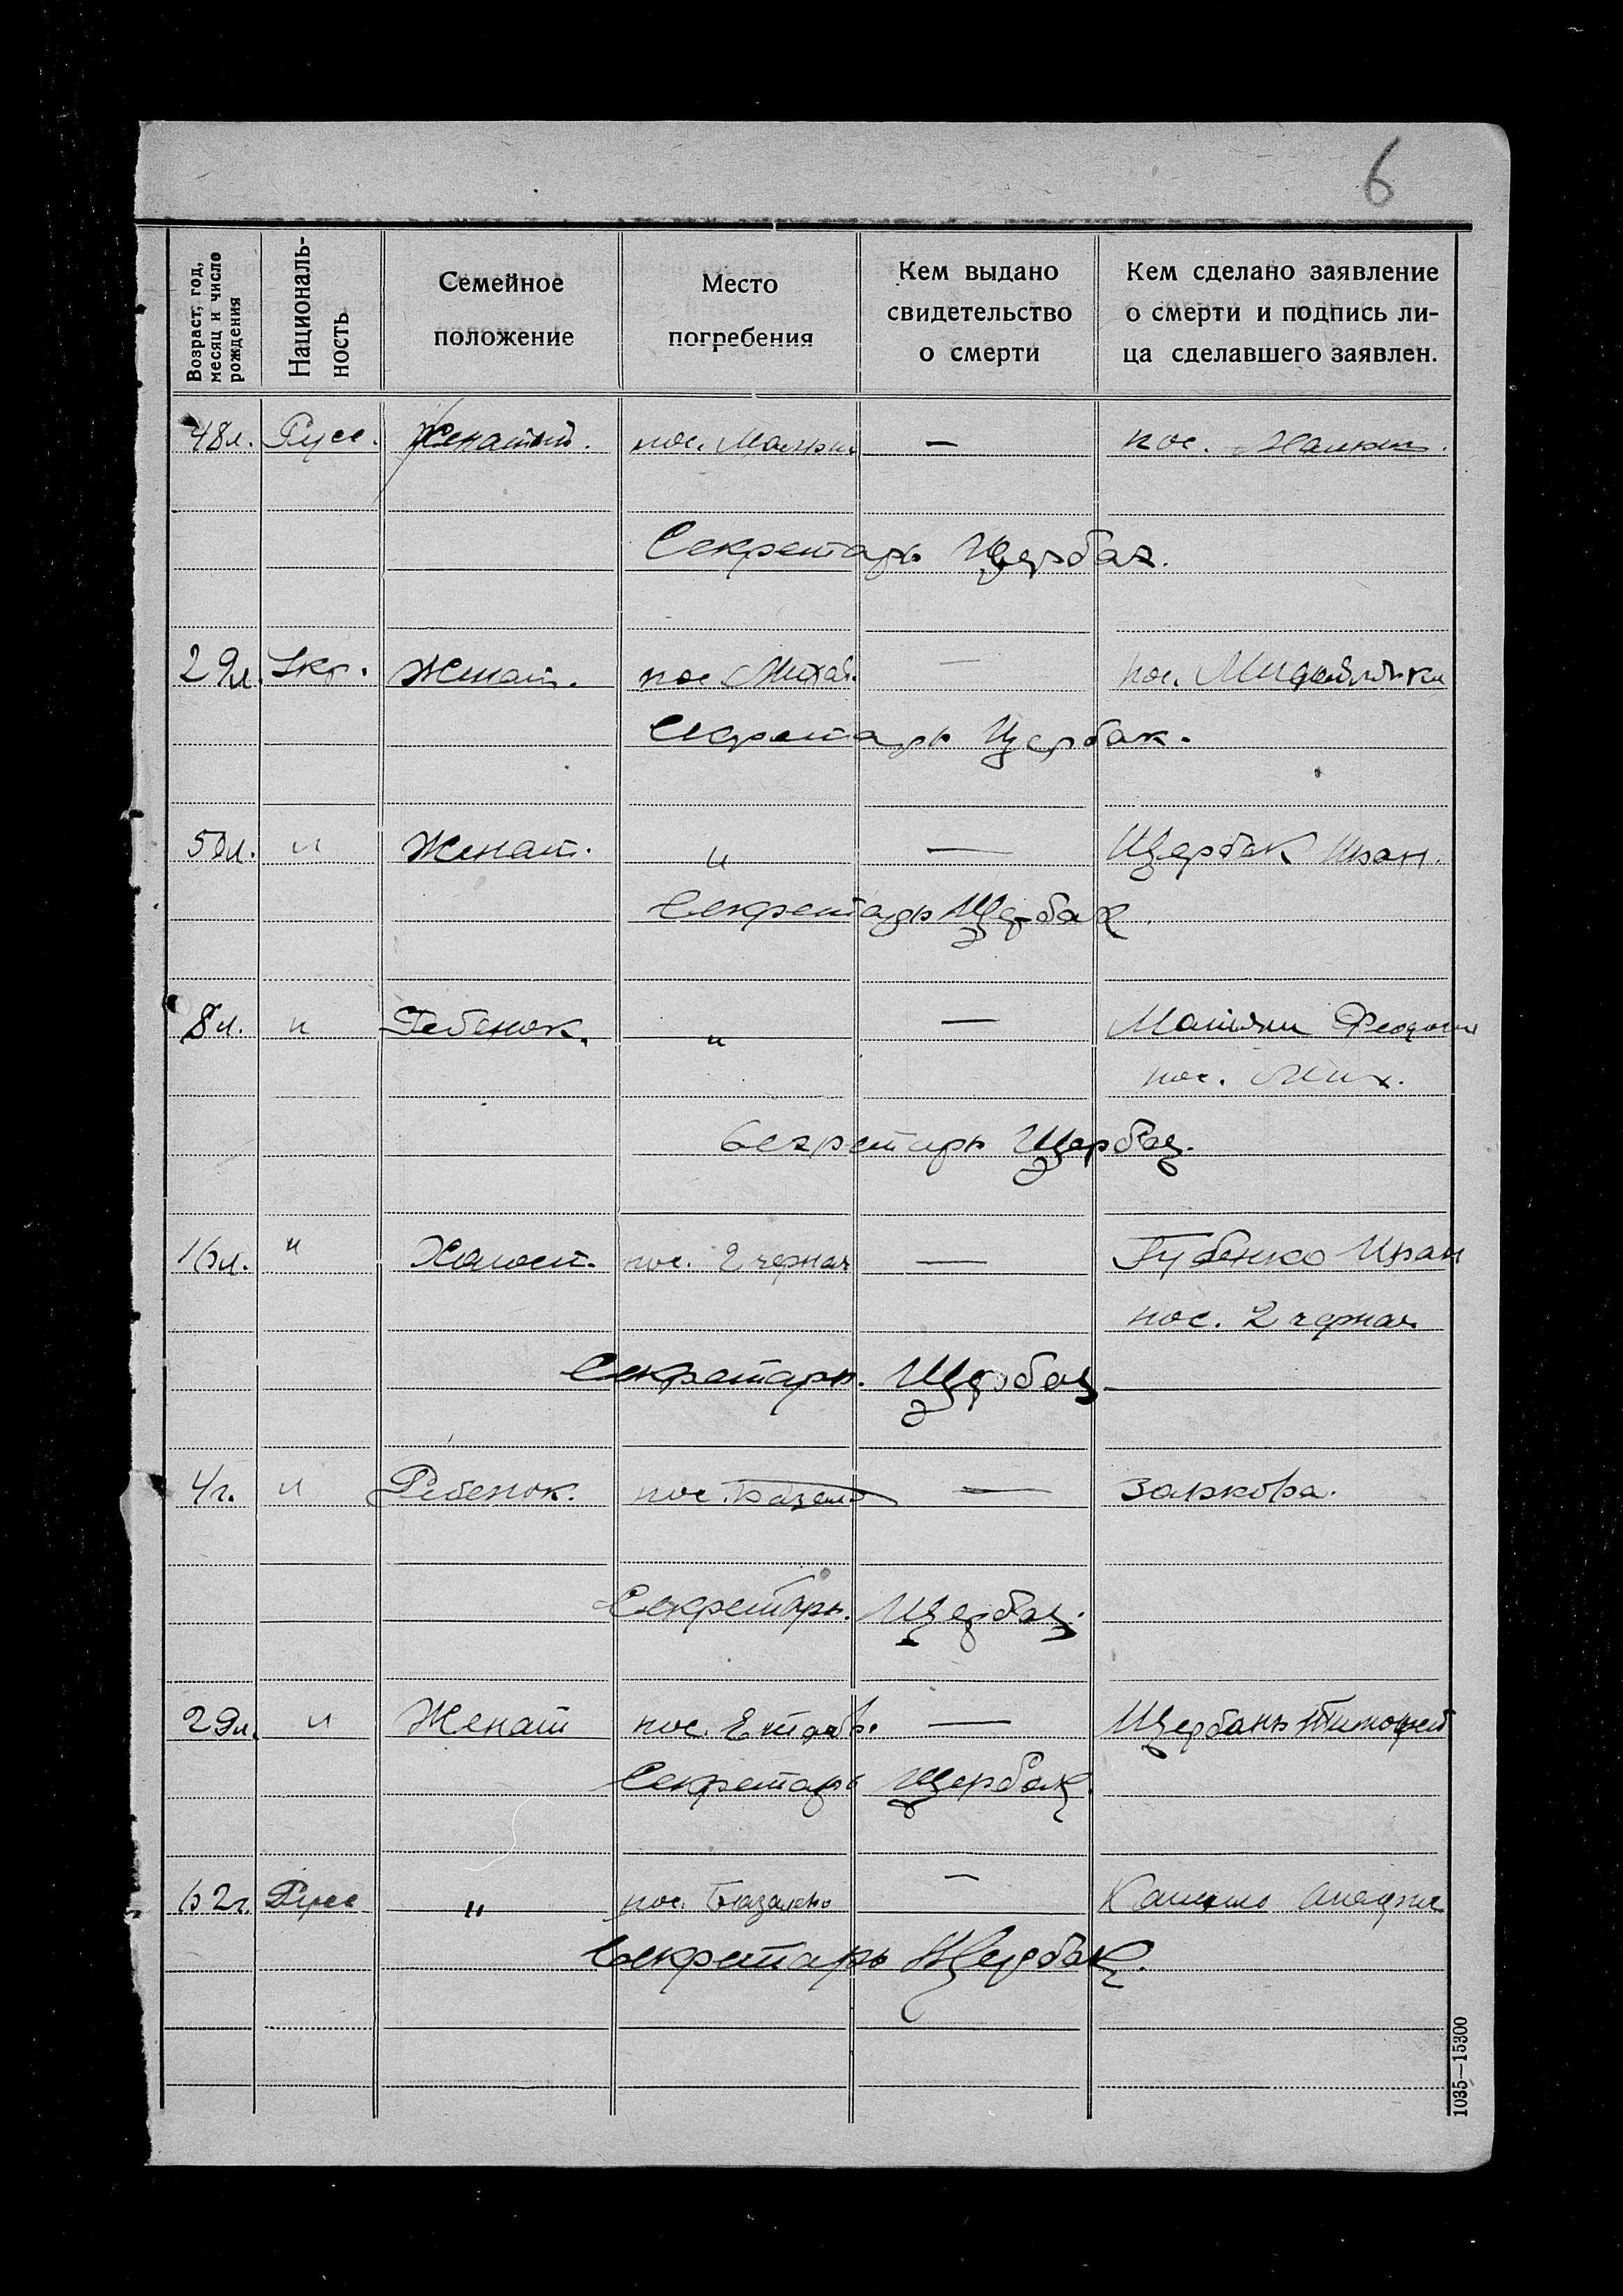 6
Возраст, год, месяц и число рождения
Националь-
ность
Семейное
положение
Место
погребения
Кем выдано
свидетельство
о смерти
Кем сделано заявление
о смерти и подпись ли-
ца сделавшего заявлен.
48л. Русс. Женатый. пос. — пос.
Секретарь Щербак.
29л. Укр. Женат. пос. Михай. — пос.
Секретарь Щербак.
50л. " Женат. " — Щербак Иван.
Секретарь Щербак.
8л. " Ребенок. " —
пос. Мих.
Секретарь Щербак.
16л. " Холост. пос. 2 черная — Губенко Иван
пос. 2 черная
Секретарь. Щербак
4г. " Ребенок. пос. — Заркова.
Секретарь. Щербак.
29л. " Женат пос. — Щербань Тимофей
Секретарь Щербак
62г. Русс " пос. —
Секретарь Щербак.
1035—15300